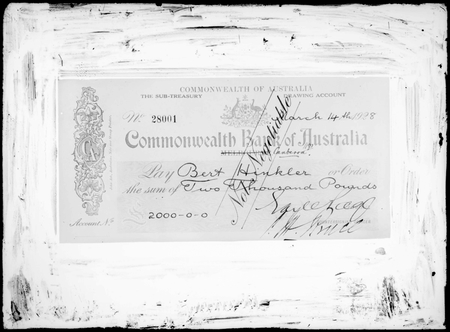 COMMONWEALTH OF AUSTRALIA
THE SUB-TREASURY DRAWING ACCOUNT
No. 28001 March 14th 1928
Commonwealth Bank of Australia
Canberra
Not Negotiable
Pay Bert Hinkler or Order
the sum of Two Thousand Pounds
£ 2000-0-0
Account No.